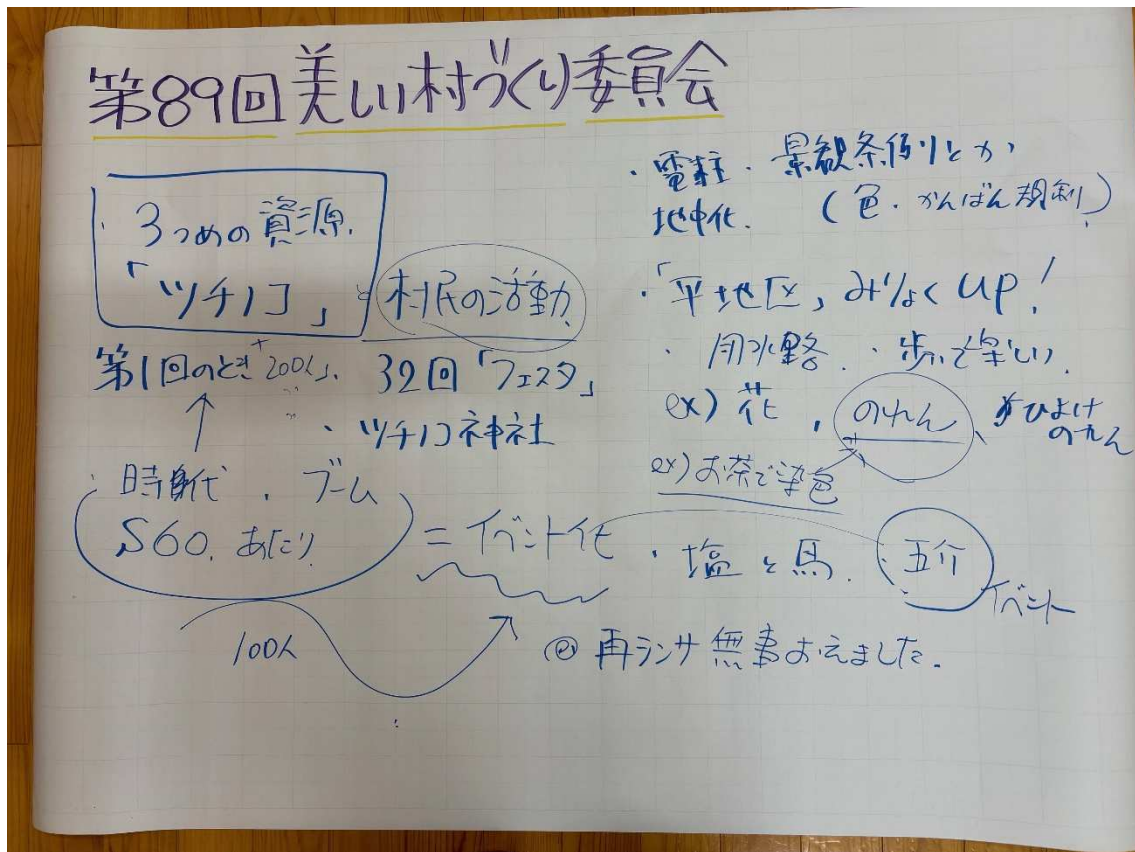 第89回 美しい村づくり委員会
・3つめの資源
「ツチノコ」 村民の活動
第1回のとき 200人 32回「フェスタ」
・ツチノコ神社
・時代、ブーム
S60. あたり = イベント化
100人
・電柱 地中化
・景観条例とか
(色・かんばん規制)
・「平地区」みりょくUP!
・用水路 ・歩いて楽しい
ex) 花、のれん、ひよけのれん
ex) お茶で染色
・塩と馬 五介 イベント
再ランサ 無事おえました。